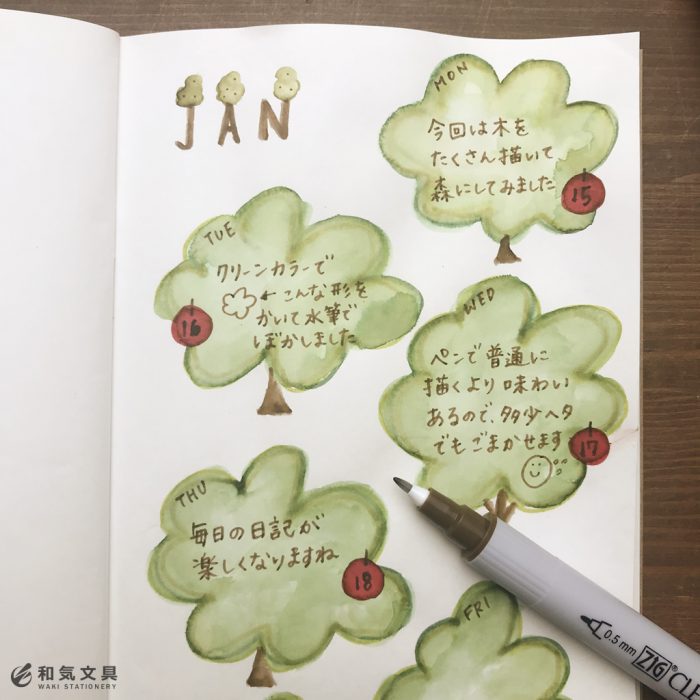 JAN
MON
今回は木を
たくさん描いて
森にしてみました
15
TUE
クリーンカラーで
←こんな形を
かいて水筆で
ぼかしました
16
WED
ペンで普通に
描くより味わい
あるので、多少ヘタ
でもごまかせます
17
THU
毎日の日記が
楽しくなりますね
18
FRI
0.5mm ZIG® CL
和気文具
WAKI STATIONERY